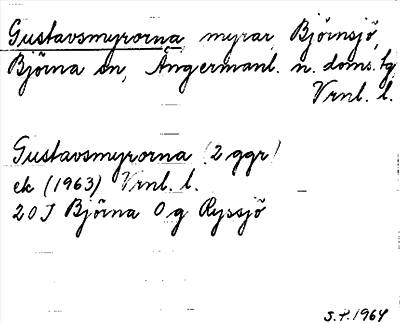 Gustavsmyrorna, myrar, Björnsjö,
Björna sn, Ångermanl. n. doms.tg
Vrnl. l.
Gustavsmyrorna (2 ggr)
ek (1963) Vrnl. l.
20J Björna Og Ryssjö
S.P. 1964